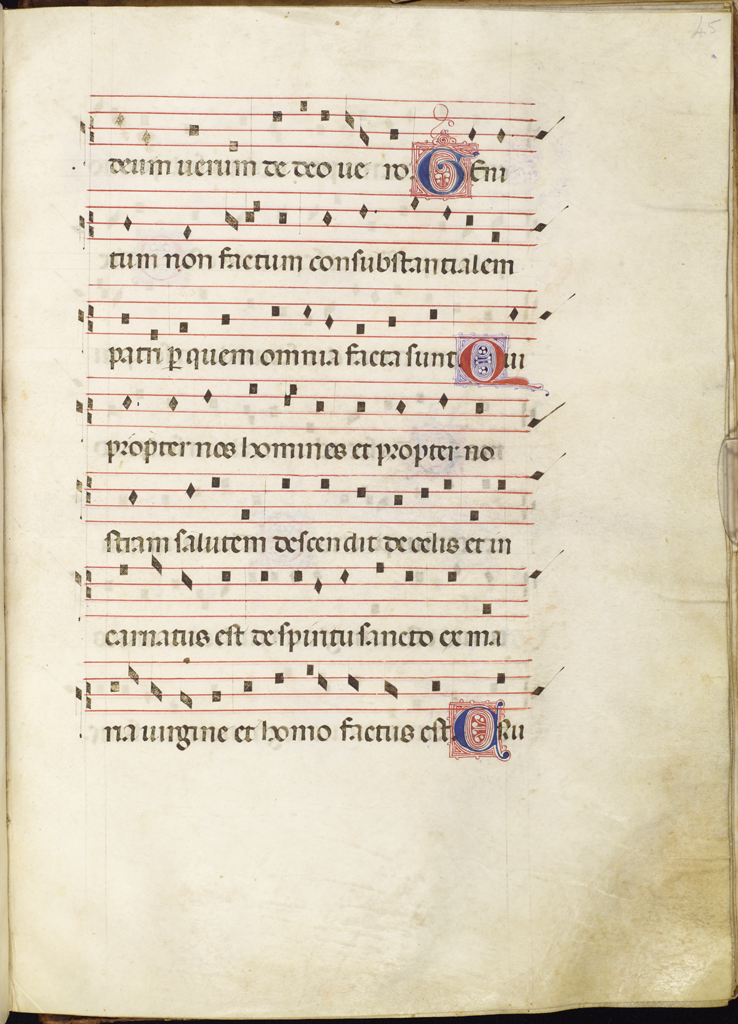 45
deum uerum de deo ue ro. Geni
tum non factum consubstantialem
patri ꝑ quem omnia facta sunt Qui
propter nos homines et propter no
stram salutem descendit de celis et in
carnatus est de spiritu sancto ex ma
ria uirgine et homo factus est. Cru